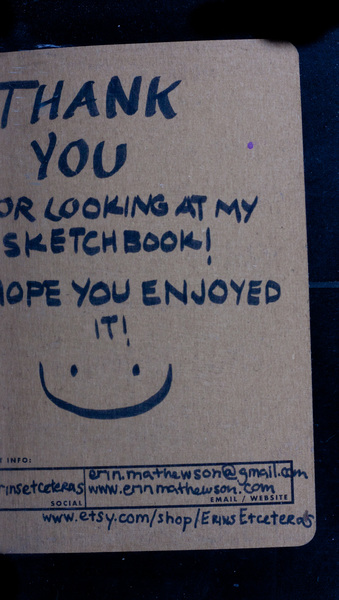 THANK
YOU
OR LOOKING AT MY
SKETCHBOOK!
HOPE YOU ENJOYED
IT!
INFO:
erin.mathewson@gmail.com
rinsetceteras www.erinmathewson.com
SOCIAL EMAIL / WEBSITE
www.etsy.com/shop/ErinsEtceteras